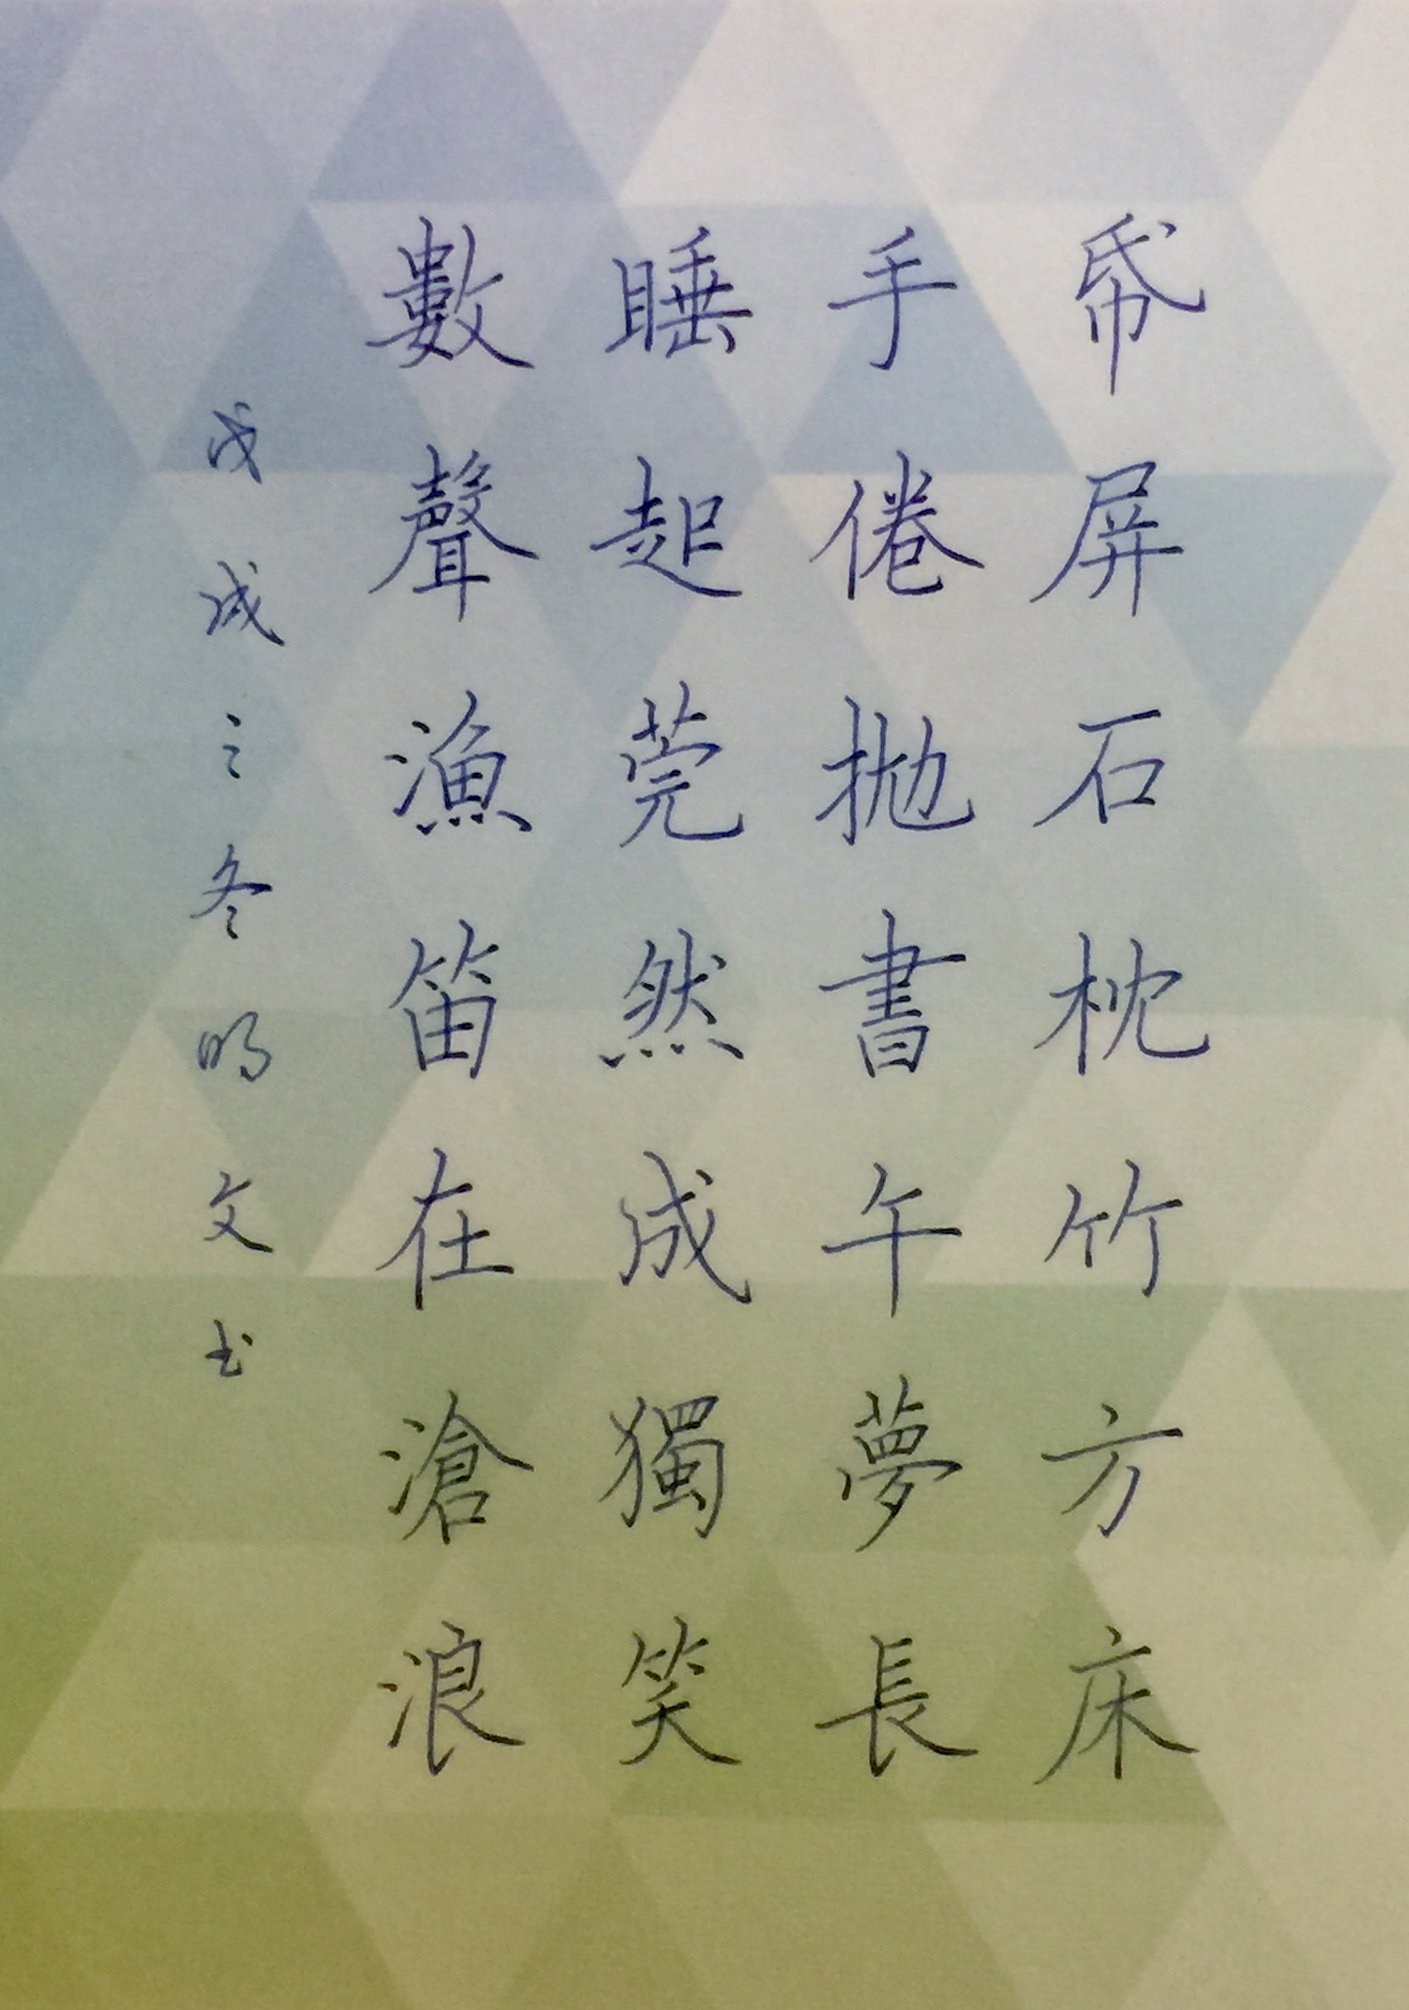 帋屏石枕竹方床
手倦拋書午夢長
睡起莞然成獨笑
數聲漁笛在滄浪
戊戌之冬明文书